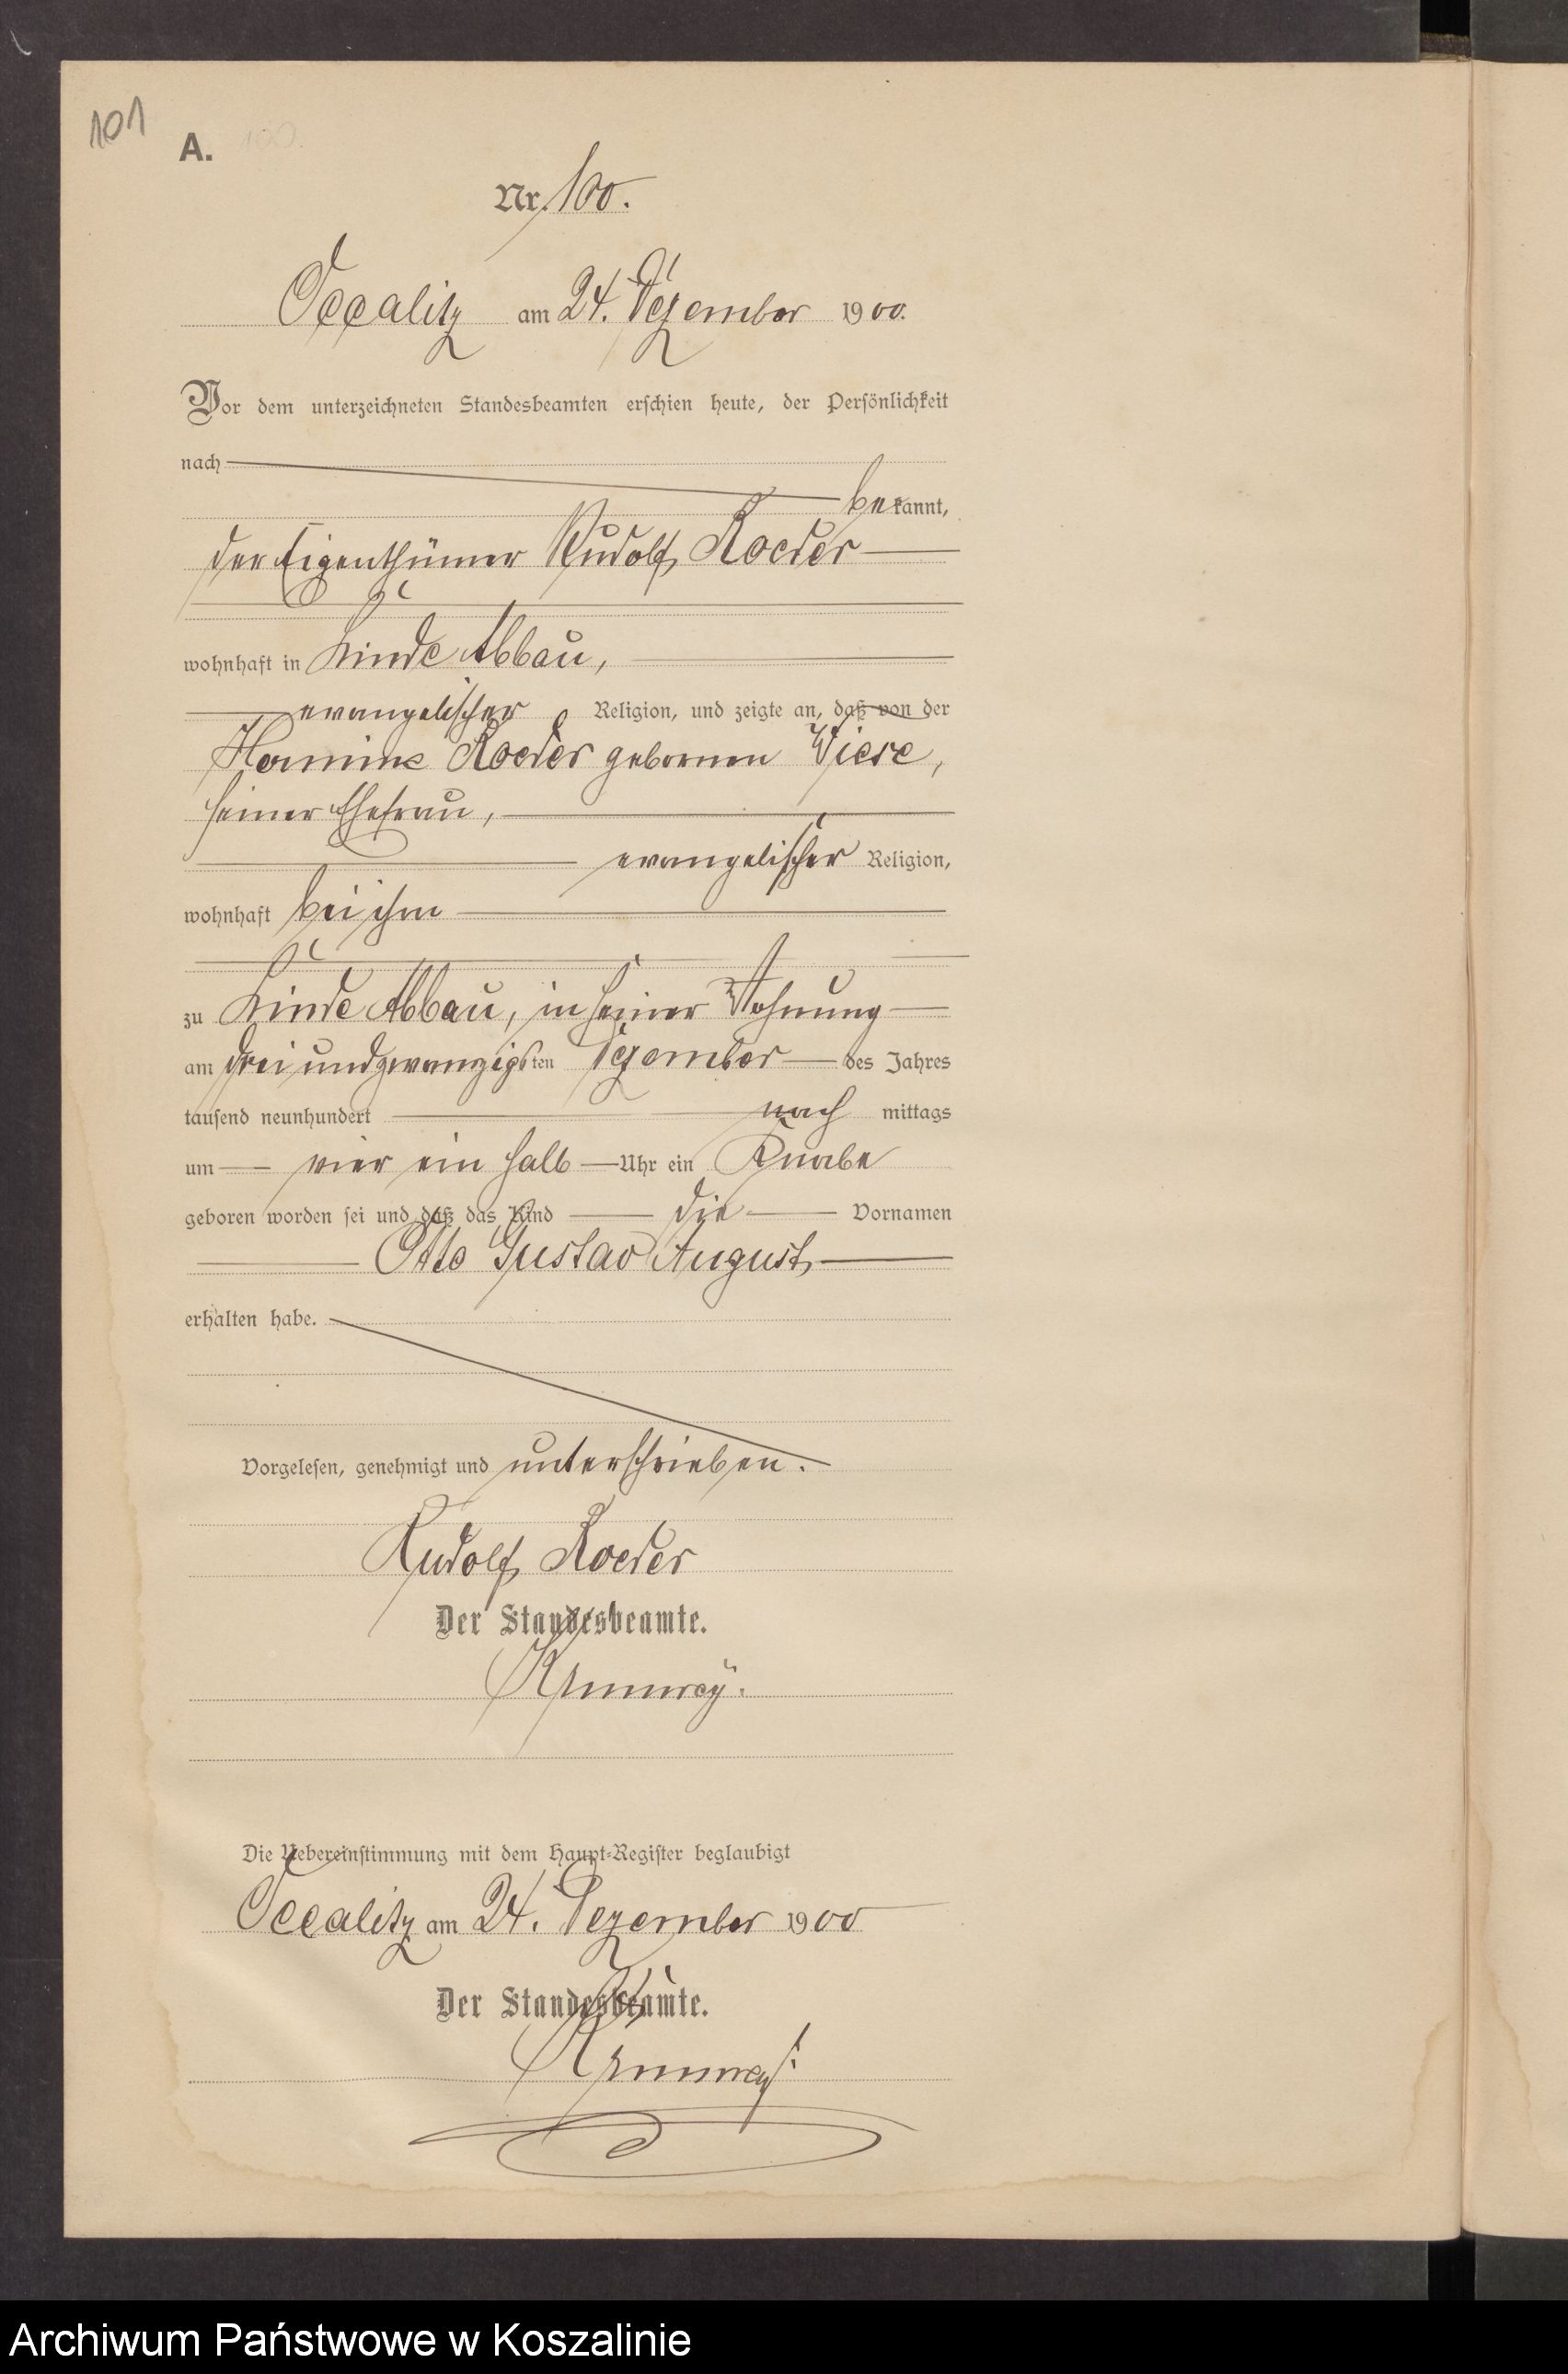 101
A. 100.
Nr. 100.
Occalitz am 24. Dezember 1900.
Vor dem unterzeichneten Standesbeamten erschien heute, der Persönlichkeit
nach
bekannt,
der Eigenthümer Rudolf Roeder
wohnhaft in Linde Abbau,
evangelischer Religion, und zeigte an, daß von der
Hermine Roeder geborenen Wiese,
seiner Ehefrau,
evangelischer Religion,
wohnhaft bei ihm
zu Linde Abbau, in seiner Wohnung
am drei und zwanzigsten Dezember des Jahres
tausend neunhundert nach mittags
um vier ein halb Uhr ein Knabe
geboren worden sei und daß das Kind die Vornamen
Otto Gustav August
erhalten habe.
Vorgelesen, genehmigt und unterschrieben.
Rudolf Roeder
Der Standesbeamte.
Die Uebereinstimmung mit dem Haupt-Register beglaubigt
Occalitz am 24. Dezember 1900
Der Standesbeamte.
Archiwum Państwowe w Koszalinie